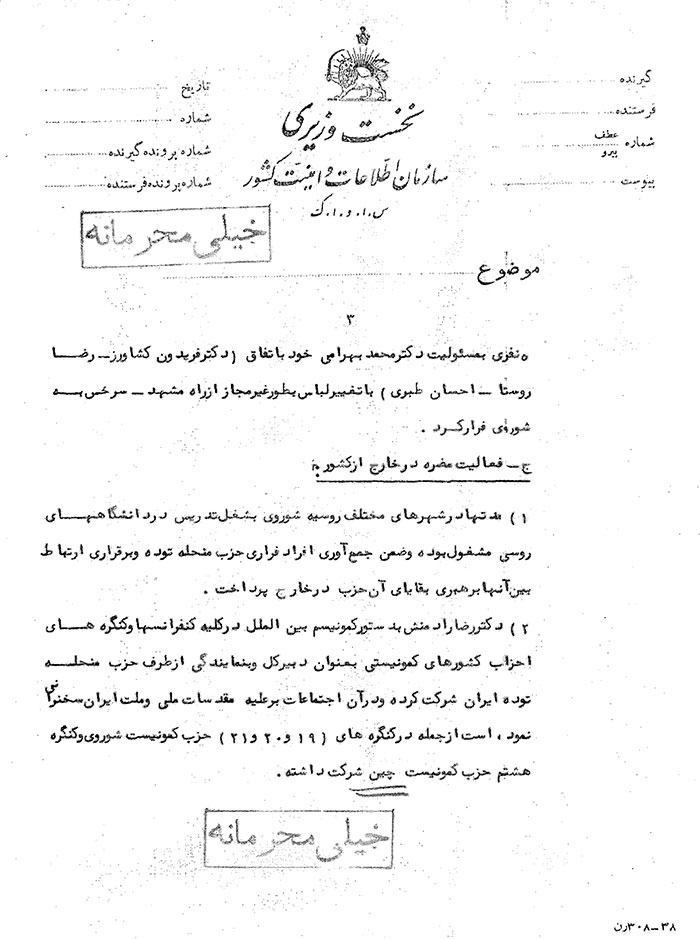 گیرنده
فرستنده
شماره عطف پیرو
پیوست
تاریخ
شماره
شماره پرونده گیرنده
شماره پرونده فرستنده
نخست وزیری
سازمان اطلاعات و امنیت کشور
س.ا.و.ا.ک
خیلی محرمانه
موضوع
۳
۵ نفری بمسئولیت دکتر محمد بهرامی خود باتفاق (دکتر فریدون کشاورز ـ رضا
روستا ـ احسان طبری) با تغییر لباس بطور غیر مجاز از راه مشهد ـ سرخس به
شوروی فرار کرد .
ج ـ فعالیت مضره در خارج از کشور :
۱) مدتها در شهرهای مختلف روسیه شوروی بشغل تدریس در دانشگاههای
روسی مشغول بوده وضمن جمع آوری افراد فراری حزب منحله توده وبرقراری ارتباط
بین آنها برهبری بقایای آن حزب در خارج پرداخت .
۲) دکتر رضا رادمنش بدستور کمونیسم بین الملل در کلیه کنفرانسها وکنگره های
احزاب کشورهای کمونیستی بعنوان دبیرکل وبنمایندگی از طرف حزب منحله
توده ایران شرکت کرده ودر آن اجتماعات بر علیه مقدسات ملی وملت ایران سخنرانی
نموده است از جمله در کنگره های (۱۹ و ۲۰ و ۲۱) حزب کمونیست شوروی وکنگره
هشتم حزب کمونیست چین شرکت داشته .
خیلی محرمانه
۳۸ـ۳۰۸رن